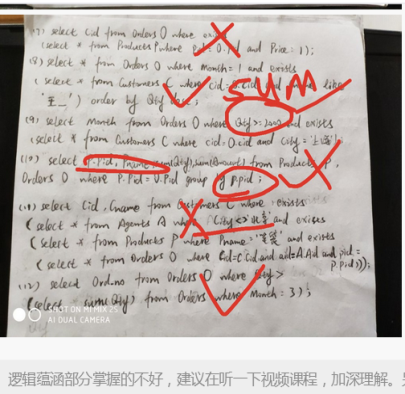 (7) select Cid from Orders O where
(select * from Products P where and Price = 1);
(8) select * from Orders O where Month = 1 and exists
(select * from Customers C where like
'王_') order by Qty
SUM
(9) select Month from Orders O where Qty > and exists
(select * from Customers C where Cid = O.Cid and City = '上海');
(10) select P.Pid, Pname, sum(Qty), sum(Amount) from Products P,
Orders O where P.Pid = O.Pid group by P.pid;
(11) select Cid, Cname from Customers C where exists
(select * from Agents A where City <> '北京' and exists
(select * from Products P where Pname = and exists
(select * from Orders O where Cid = C.Cid and aid = A.Aid and pid =
P.Pid)));
(12) select Ord.no from Orders O where Qty >
(select sum(Qty) from Orders where Month = 3);
SHOT ON MI MIX 2S
AI DUAL CAMERA
逻辑蕴涵部分掌握的不好，建议在听一下视频课程，加深理解。